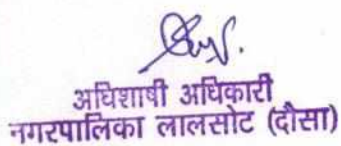 अधिशाषी अधिकारी
नगरपालिका लालसोट (दौसा)